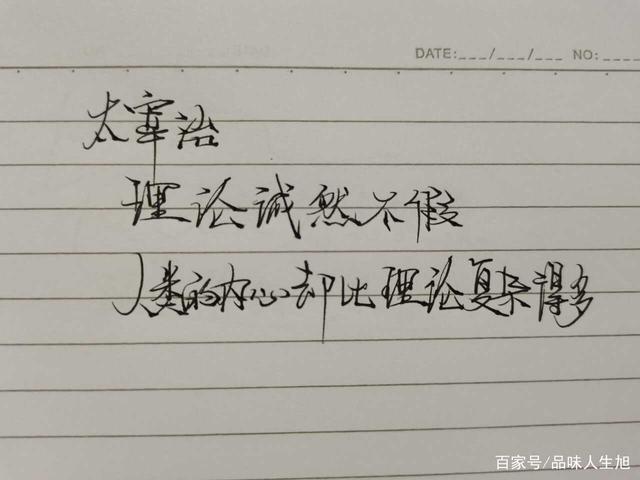 DATE:___/___/___ NO:____
太宰治
理论诚然不假
人类的内心却比理论复杂得多
百家号/品味人生旭